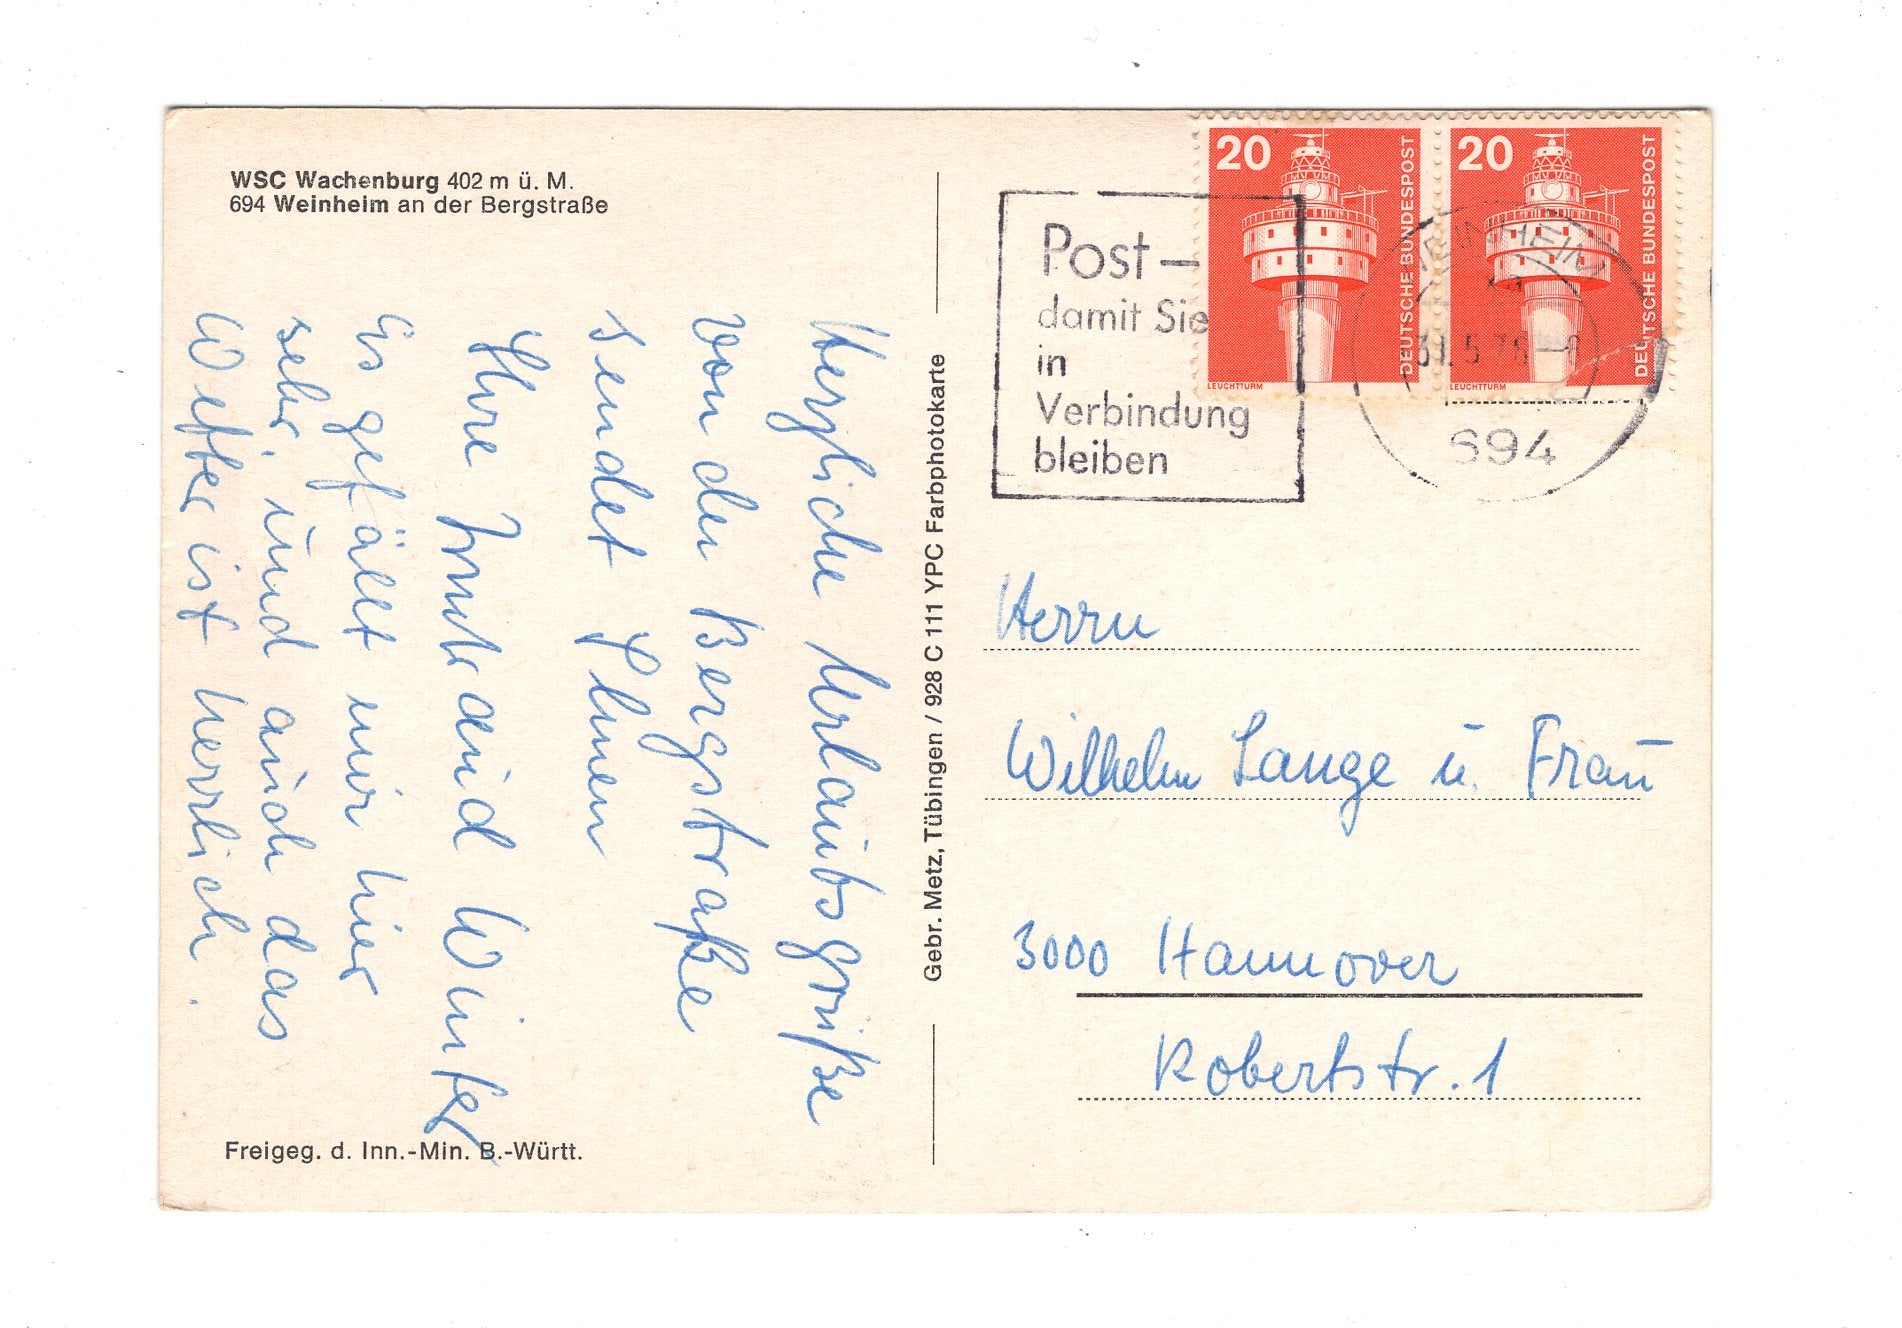 WSC Wachenburg 402 m ü. M.
694 Weinheim an der Bergstraße
Herzliche Urlaubsgrüße
von der Bergstraße
sendet Ihnen
Ihre Winter
Es gefällt mir hier
sehr, und auch das
Wetter ist herrlich.
Freigeg. d. Inn.-Min. B.-Württ.
Gebr. Metz, Tübingen / 928 C 111 YPC Farbphotokarte
20
DEUTSCHE BUNDESPOST
LEUCHTTURM
20
DEUTSCHE BUNDESPOST
LEUCHTTURM
Post –
damit Sie
in
Verbindung
bleiben
WEINHEIM
694
Herrn
Wilhelm Lange u. Frau
3000 Hannover
Robertstr. 1